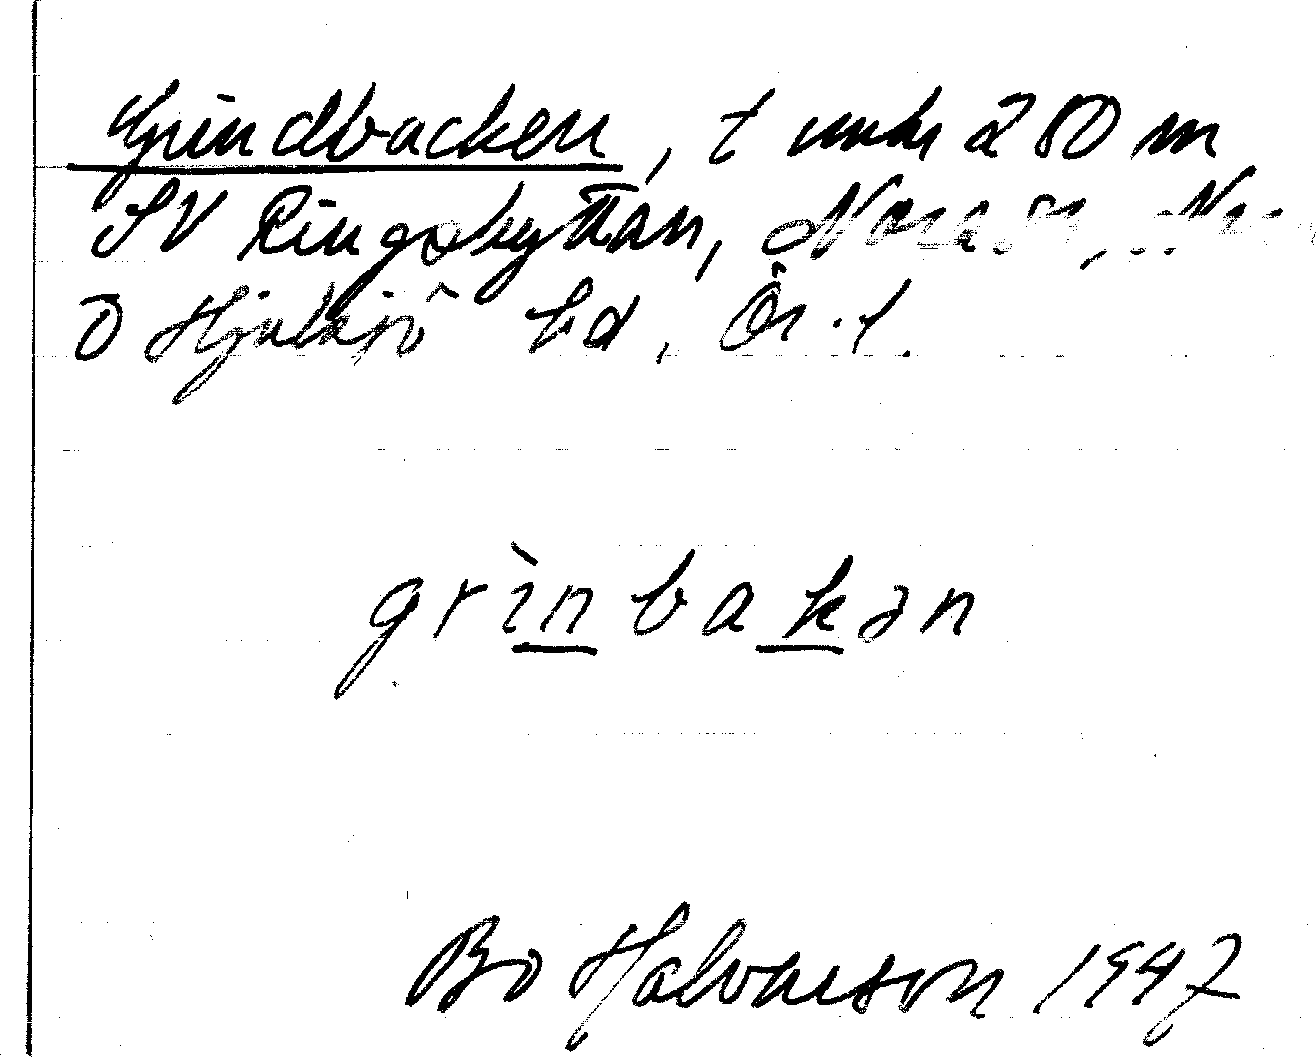 Grindbacken, t 280 m
SV Ringsbyttan, Nora
o Hjulsjö bd, Ör. l.
grìnbakən
Bo Halvarson 1947